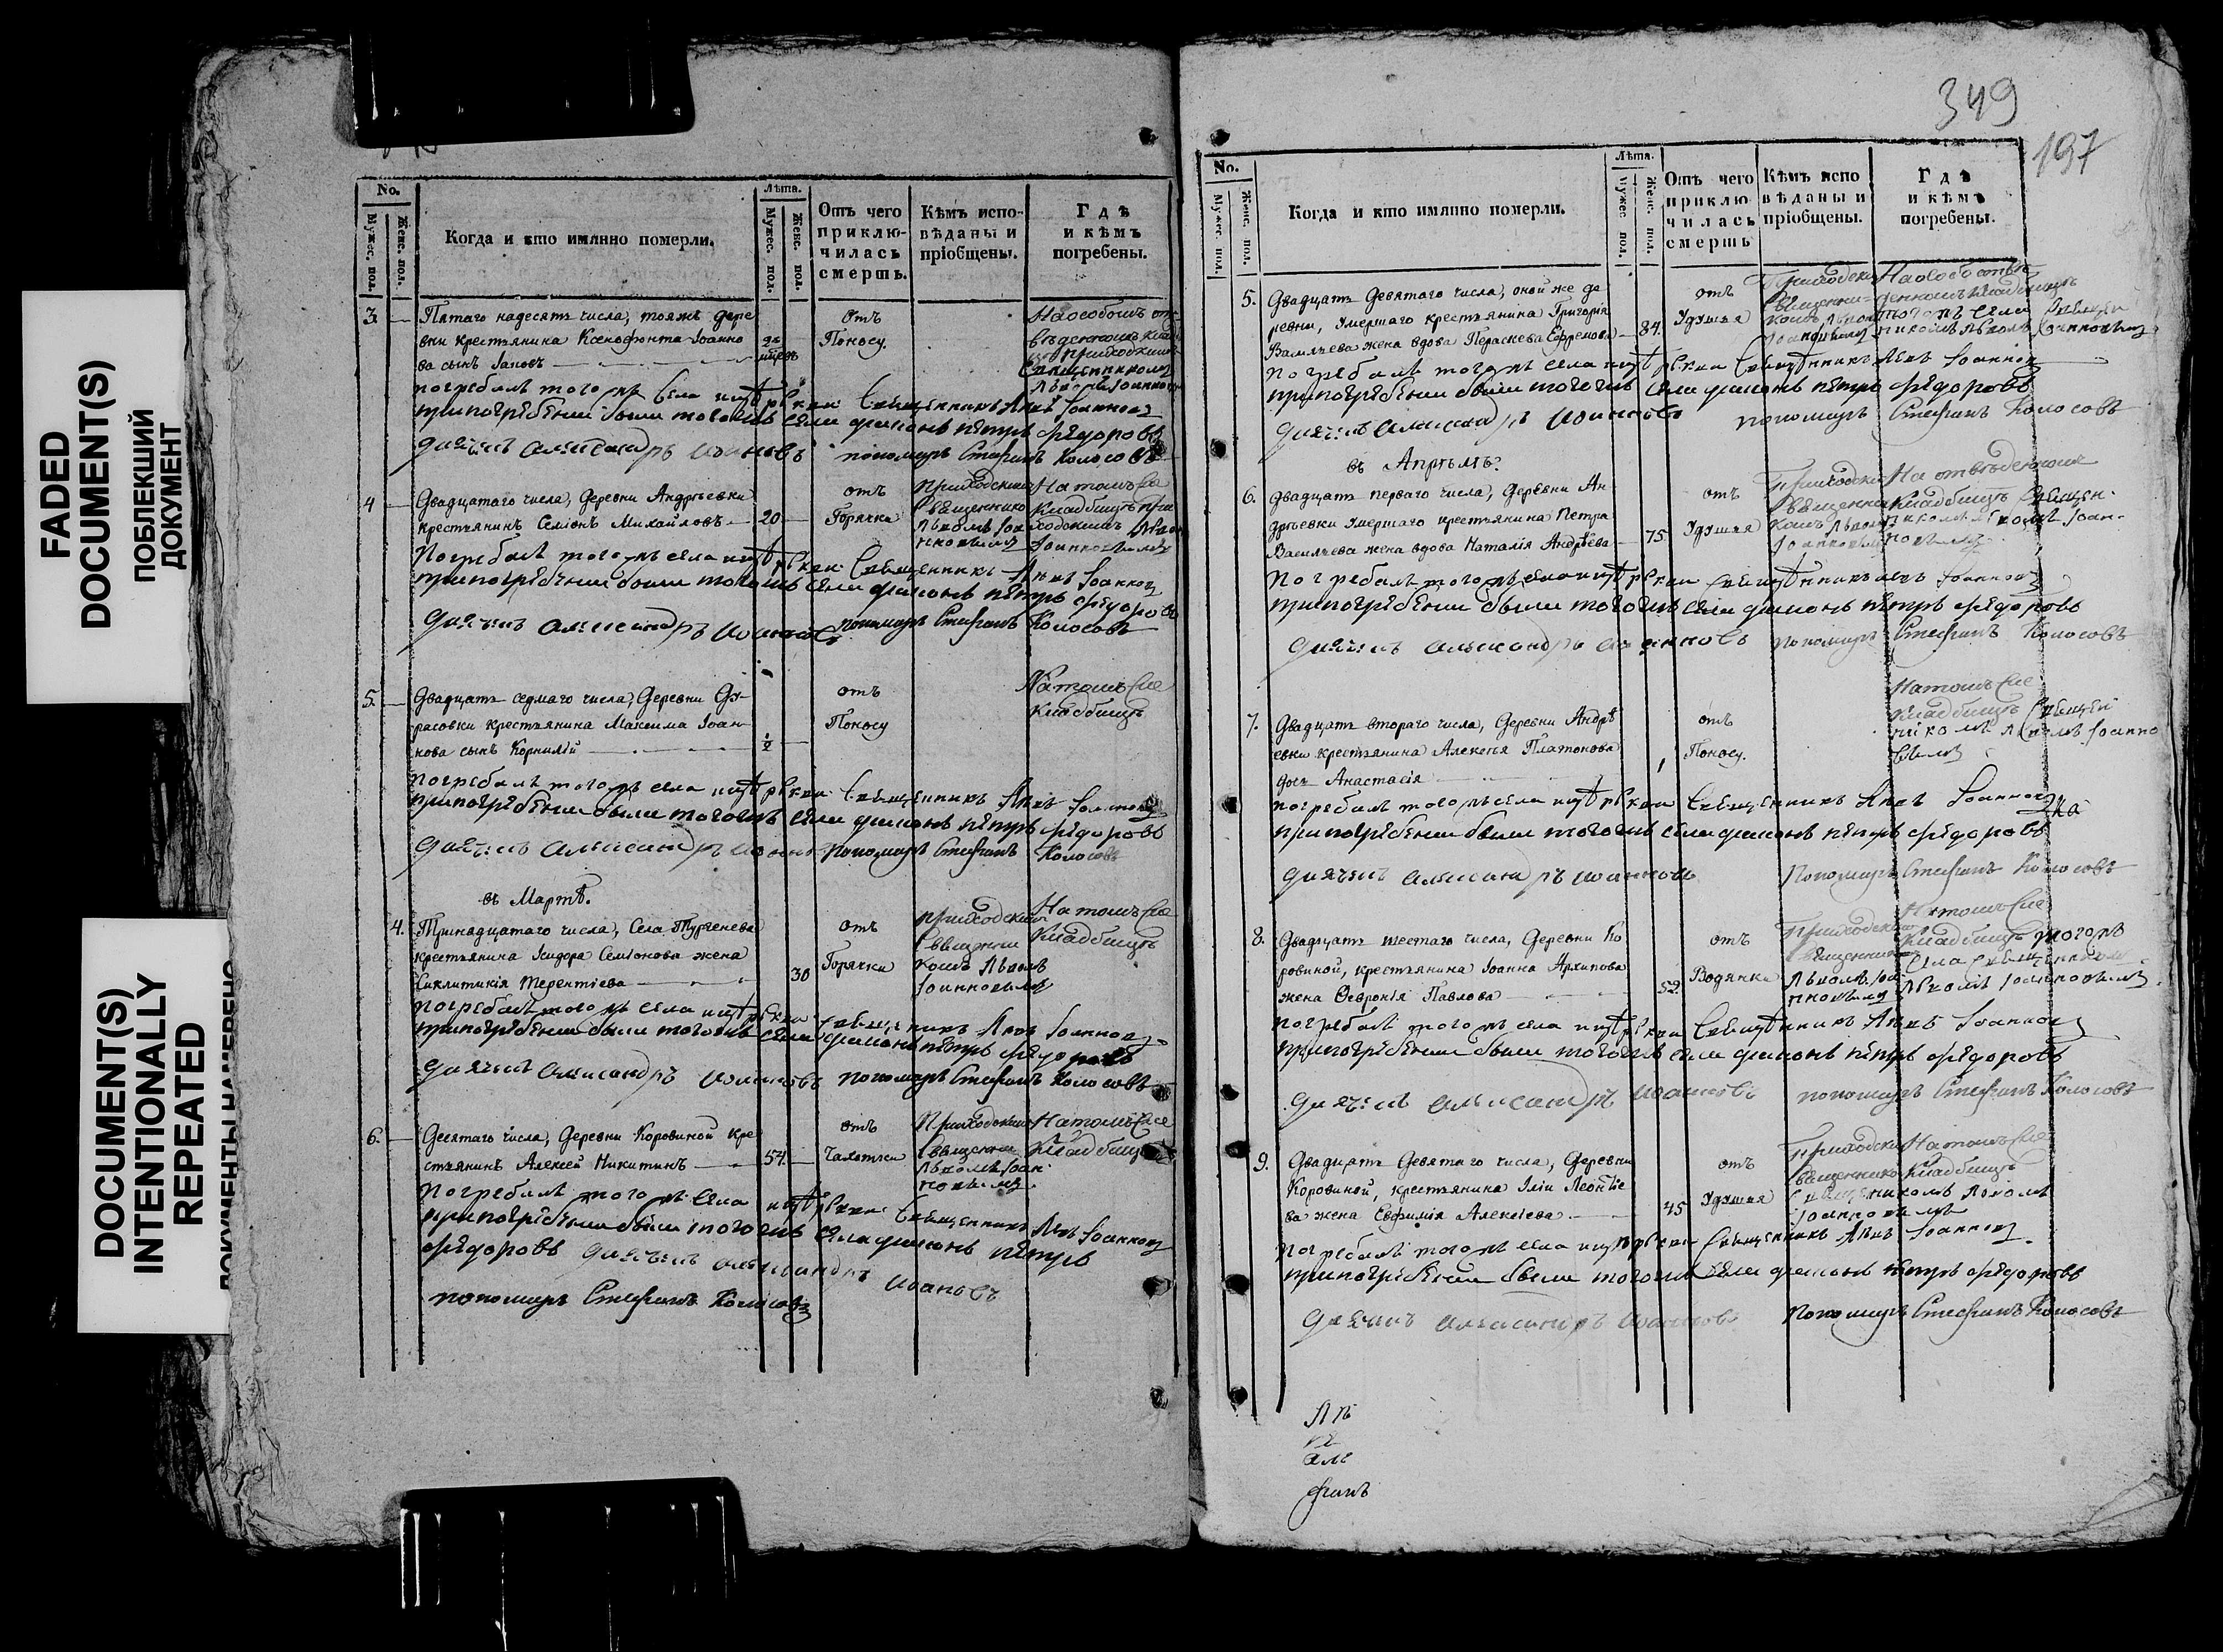 FADED
DOCUMENT(S)
ПОБЛЕКШИЙ
ДОКУМЕНТ
DOCUMENT(S)
INTENTIONALLY
REPEATED
ДОКУМЕНТЫ НАМЕРЕНО
No.
Мужес. пол.
Женс. пол.
Когда и кто имянно померли.
Лѣта.
Мужес. пол.
Женс. пол.
Отъ чего приклю-чилась смерть.
Кѣмъ испо-вѣданы и пріобщены.
Гдѣ и кѣмъ погребены.
3. Пятаго надесять числа, тояжъ дере
вни крестьянина Ксенофонта Іоанно
ва сынъ Іаковъ
отъ
Поносу.
погребалъ того жъ села священникъ Левъ Іоанновъ
при погребеніи были тогожъ села діаконъ Петръ Федоровъ
дьячекъ Александръ Иоанновъ пономарь Стефанъ Колосовъ
4 Двадцатаго числа, деревни Андреевки
крестьянинъ Семіонъ Михайловъ 20
отъ
Горячки
Приходскимъ
На томъ же
кладбищѣ
погребалъ того жъ села священникъ Левъ Іоанновъ
при погребеніи были тогожъ села діаконъ Петръ Федоровъ
дьячекъ Александръ Иоанновъ пономарь Стефанъ Колосовъ
5. Двадцать седмаго числа, деревни Ду-
расовки крестьянина Максима Іоан-
нова сынъ Корнилій 1/2
отъ
Поносу
На томъ же
кладбищѣ
погребалъ того жъ села священникъ Левъ Іоанновъ
при погребеніи были тогожъ села діаконъ Петръ Федоровъ
дьячекъ Александръ Иоанновъ пономарь Стефанъ Колосовъ
въ Мартѣ.
4. Тринадцатаго числа, Села Тургенева
крестьянина Исидора Семіонова жена
Сиклитикія Терентіева 30
отъ
Горячки
приходскимъ
священни
комъ Львомъ
Іоанновымъ
На томъ же
кладбищѣ
погребалъ того жъ села священникъ Левъ Іоанновъ
при погребеніи были тогожъ села діаконъ Петръ Федоровъ
дьячекъ Александръ Иоанновъ пономарь Стефанъ Колосовъ
6. Десятаго числа, деревни Коровиной кре
стьянинъ Алексей Никитинъ 54.
отъ
Чахотки
Приходскимъ
священни
Львомъ Іоан
новымъ
На томъ же
кладбищѣ
погребалъ того жъ села священникъ Левъ Іоанновъ
при погребеніи были тогожъ села діаконъ Петръ
Федоровъ дьячекъ Александръ Иоановъ
пономарь Стефанъ Колосовъ
349
197
No.
Мужес. пол.
Женс. пол.
Когда и кто имянно померли.
Лѣта.
Мужес. пол.
Женс. пол.
Отъ чего приклю-чилась смерть
Кѣмъ испо вѣданы и пріобщены.
Гдѣ и кѣмъ погребены.
5. Двадцать девятаго числа, оной же де
ревни, умершаго крестьянина Григорія
Васильева жена вдова Параскева Ефремова 84.
отъ
Удушья
погребалъ того жъ села священникъ Левъ Іоанновъ
при погребеніи были тогожъ села діаконъ Петръ Федоровъ
дьячекъ Александръ Иоанновъ пономарь Стефанъ Колосовъ
въ Апрѣлѣ.
6. Двадцать перваго числа, деревни Ан
дреевки умершаго крестьянина Петра
Васильева жена вдова Наталія Андрѣева 75
отъ
Удушья
На отведенномъ
кладбищѣ
погребалъ того жъ села священникъ Левъ Іоанновъ
при погребеніи были тогожъ села діаконъ Петръ Федоровъ
дьячекъ Александръ Иоанновъ пономарь Стефанъ Колосовъ
7. Двадцать втораго числа, деревни Андрѣ
евки крестьянина Алексѣя Платонова
дочь Анастасія 1
отъ
Поносу.
На томъ же
кладбищѣ священ
никомъ Львомъ Іоанно
вымъ
погребалъ того жъ села священникъ Левъ Іоанновъ
при погребеніи были тогожъ села діаконъ Петръ Федоровъ
дьячекъ Александръ Иоанновъ Пономарь Стефанъ Колосовъ
8. Двадцать шестаго числа, деревни Ко
ровиной, крестьянина Іоанна Архипова
жена Февронія Павлова 52.
отъ
Водянки
На томъ же
кладбищѣ тогожъ
села священником
Львомъ Іоанновымъ
погребалъ того жъ села священникъ Левъ Іоанновъ
при погребеніи были тогожъ села діаконъ Петръ Федоровъ
дьячекъ Александръ Иоанновъ пономарь Стефанъ Колосовъ
9. Двадцать девятаго числа, деревни
Коровиной, крестьянина Іліи Леонтіе
ва жена Евфимія Алексіева 45
отъ
Удушья
На томъ же
кладбищѣ
священикомъ Львомъ
Іоанновымъ
погребалъ того жъ села священникъ Левъ Іоанновъ
при погребеніи были тогожъ села діаконъ Петръ Федоровъ
дьячекъ Александръ Иоанновъ Пономарь Стефанъ Колосовъ